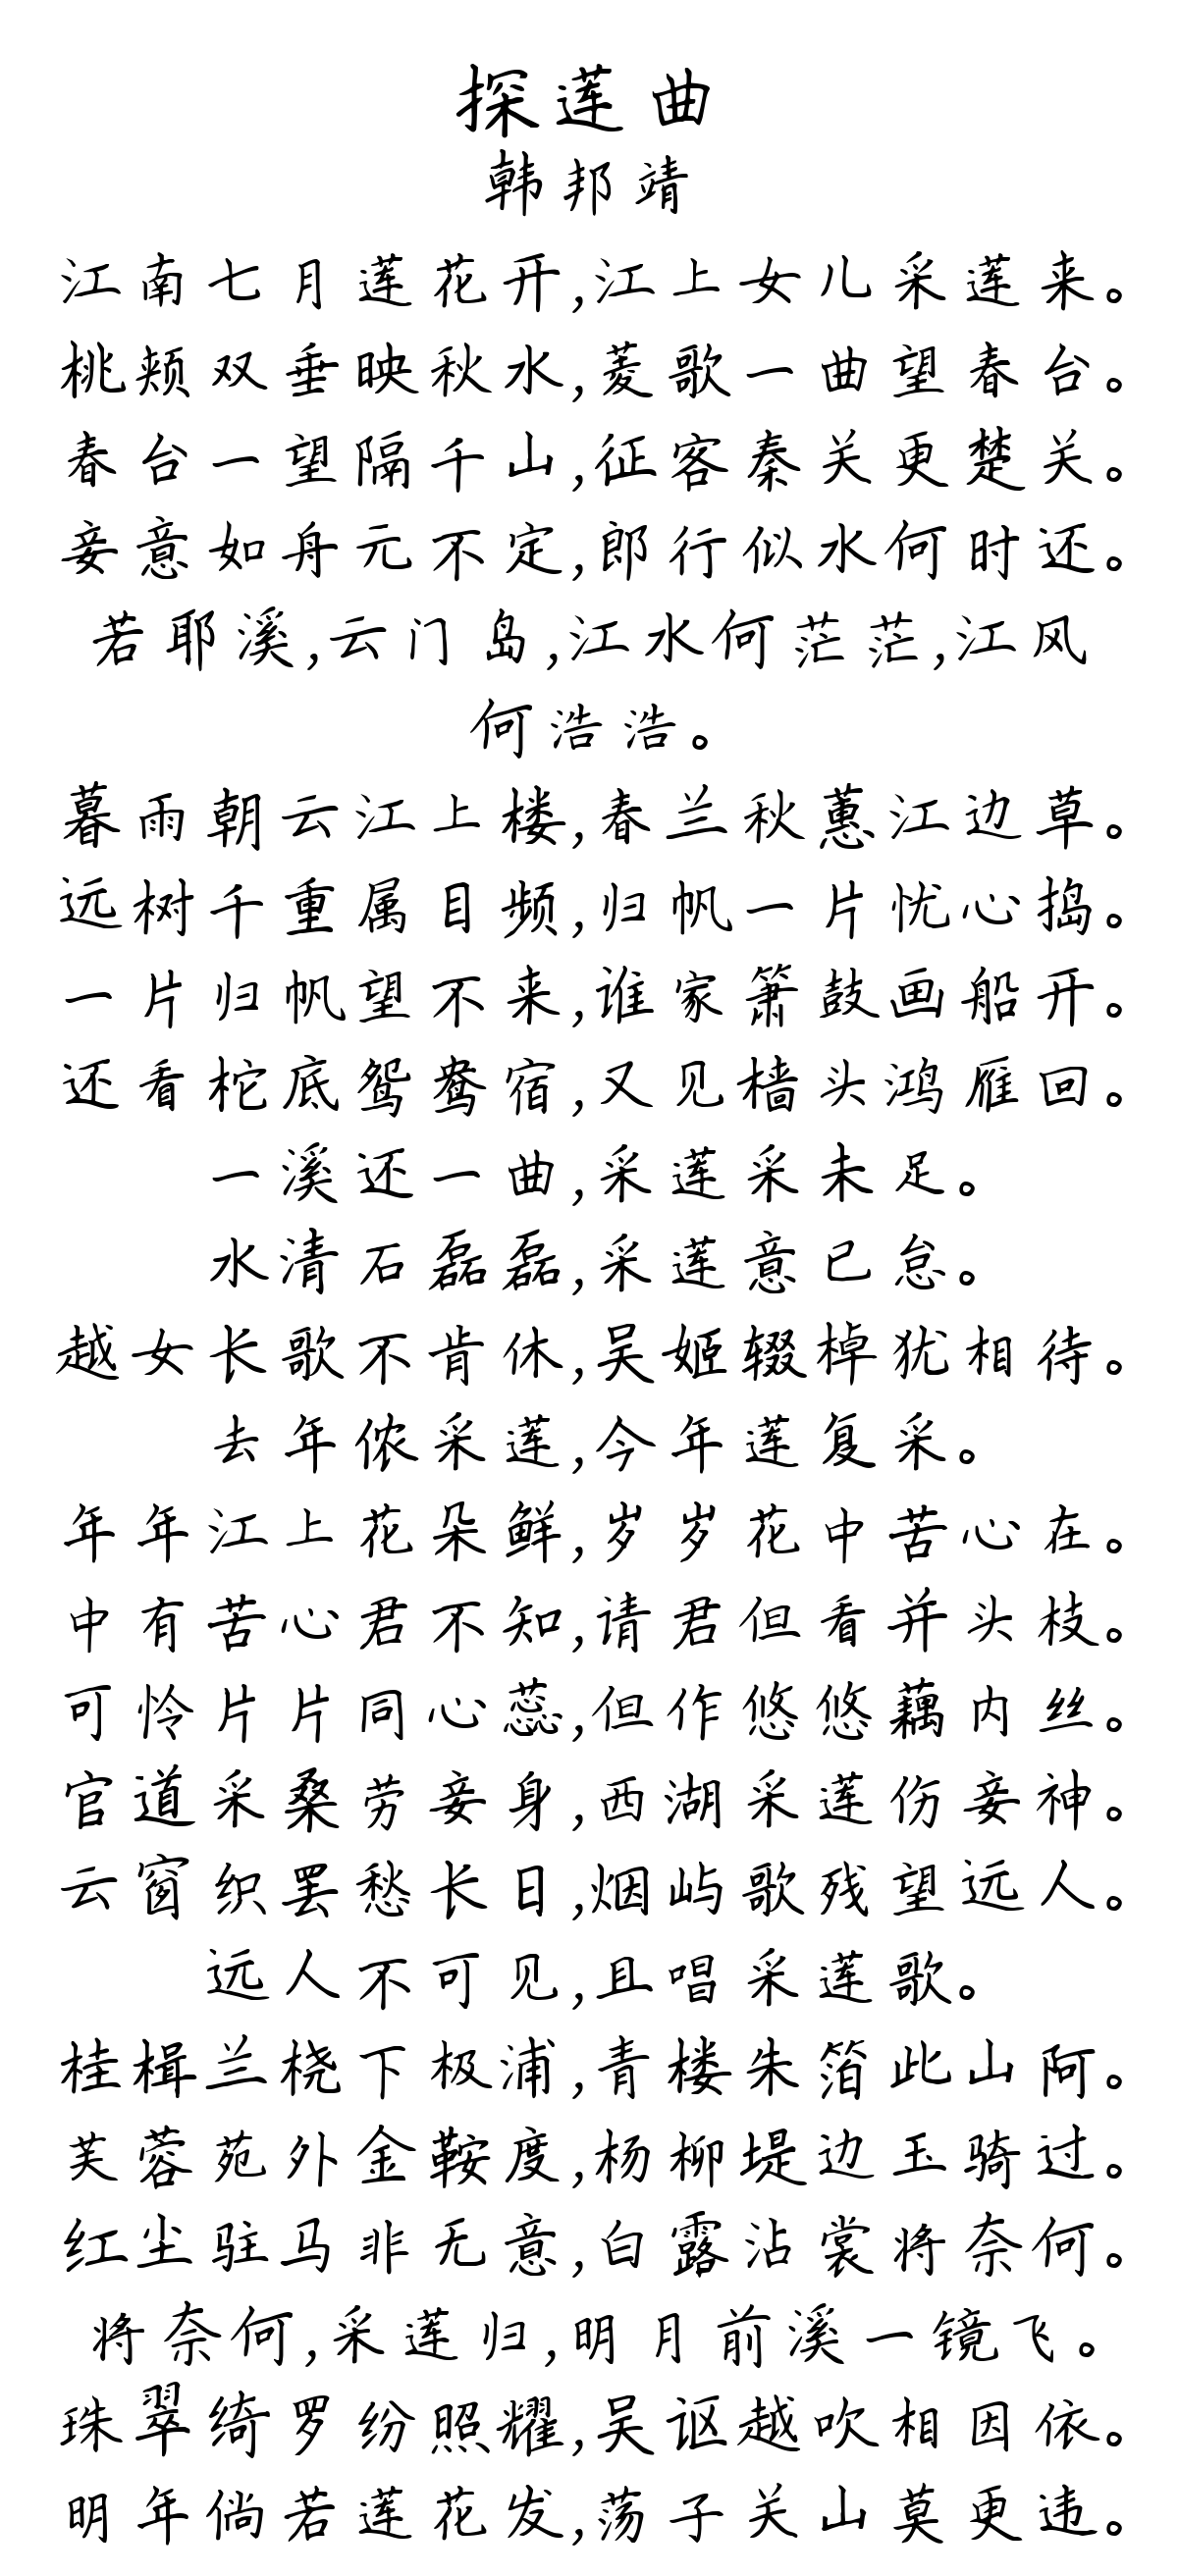 探莲曲
韩邦靖
江南七月莲花开,江上女儿采莲来。
桃颊双垂映秋水,菱歌一曲望春台。
春台一望隔千山,征客秦关更楚关。
妾意如舟元不定,郎行似水何时还。
若耶溪,云门岛,江水何茫茫,江风
何浩浩。
暮雨朝云江上楼,春兰秋蕙江边草。
远树千重属目频,归帆一片忧心捣。
一片归帆望不来,谁家箫鼓画船开。
还看柁底鸳鸯宿,又见樯头鸿雁回。
一溪还一曲,采莲采未足。
水清石磊磊,采莲意已怠。
越女长歌不肯休,吴姬辍棹犹相待。
去年侬采莲,今年莲复采。
年年江上花朵鲜,岁岁花中苦心在。
中有苦心君不知,请君但看并头枝。
可怜片片同心蕊,但作悠悠藕内丝。
官道采桑劳妾身,西湖采莲伤妾神。
云窗织罢愁长日,烟屿歌残望远人。
远人不可见,且唱采莲歌。
桂楫兰桡下极浦,青楼朱箔此山阿。
芙蓉苑外金鞍度,杨柳堤边玉骑过。
红尘驻马非无意,白露沾裳将奈何。
将奈何,采莲归,明月前溪一镜飞。
珠翠绮罗纷照耀,吴讴越吹相因依。
明年倘若莲花发,荡子关山莫更违。